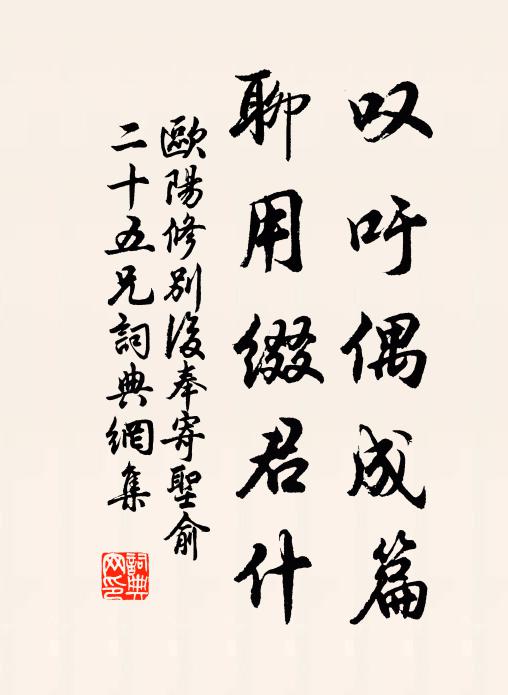 叹吁偶成篇
聊用缀君什
歐陽修别後奉寄聖俞
二十五兄詞典網集
詞典
网印